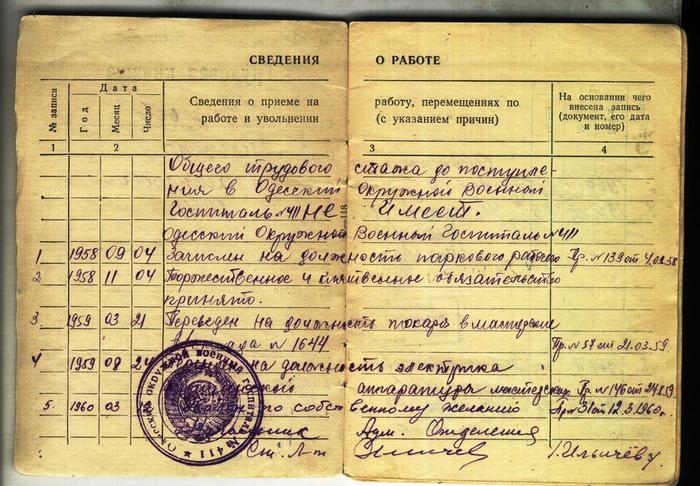 СВЕДЕНИЯ О РАБОТЕ
№ записи
Дата
Год
Месяц
Число
Сведения о приеме на работу, перемещениях по
работе и увольнении (с указанием причин)
На основании чего
внесена запись
(документ, его дата
и номер)
1 2 3 4
Общего трудового стажа до поступле-
ния в Одесский Окружной Военный
Госпиталь №411 НЕ Имеет.
Одесский Окружной Военный Госпиталь №411
1 1958 09 04 Зачислен на должность паркового Пр. №139 от 4.09.58
2 1958 11 04 Торжественное обязательство
принято.
3 1959 03 21 Переведен на должность
N 1644 Пр. N 57 от 21.03.59.
4 1959 08 24 на должность электрика
аппаратура Пр. N 146 от 24.8.59.
5. 1960 03 собственному желанию Пр. N 31 от 12.3.1960г.
Адм. Отделения
Ст. Л-т /Ильичёв/
ОДЕССКИЙ ОКРУЖНОЙ ВОЕННЫЙ ГОСПИТАЛЬ № 411